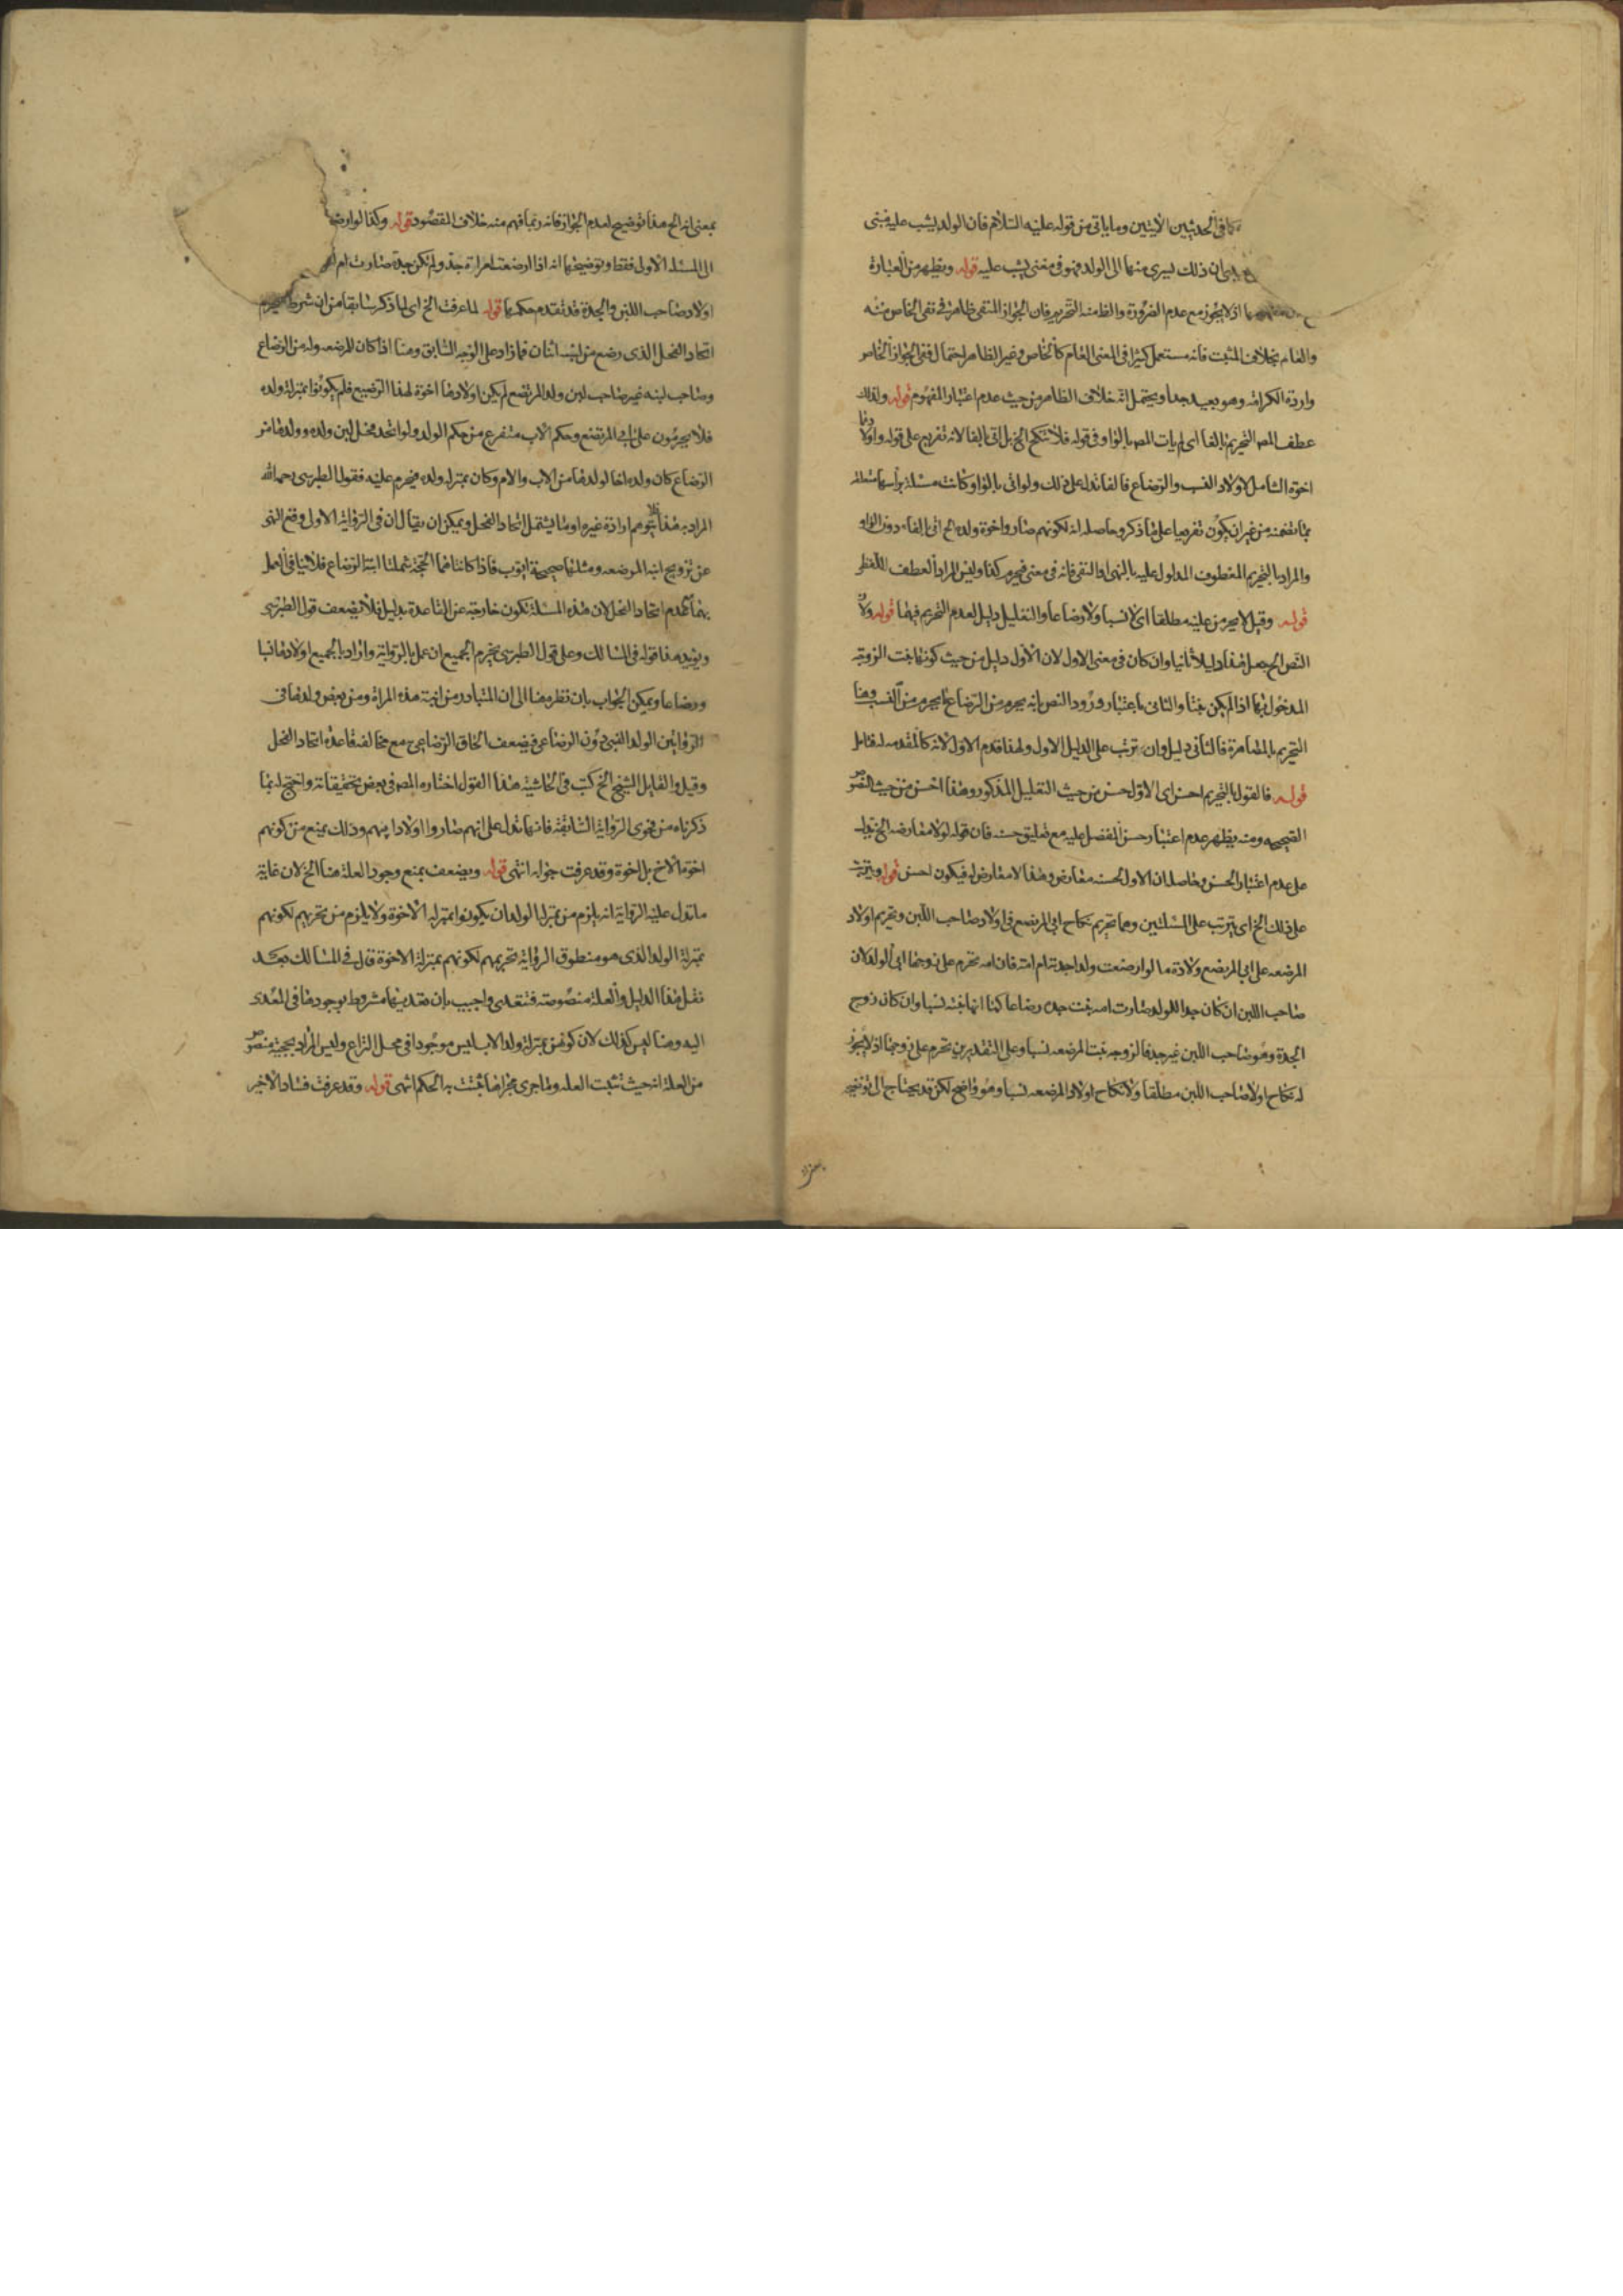 كما في الحديثين الآتيين وما ياتي من قوله عليه السلام فان الولد يشب عليه فبنى
ان ذلك ليسرى منها الى الولد فهو في معنى يشب عليه قوله ويظهر من العبارة
اذ لا يجوز مع عدم الضرورة والظ منه التحريم فان الجواز المنفى ظاهر في نفى الخاص منه
والعام بخلاف المثبت فانه مستعمل كثيرا في المعنى العام كالخاص وغير الظاهر احتمال نفى الجواز الخاص
وارادة الكراهة وهو بعيد جدا ويحتمل انه خلاف الظاهر من حيث عدم اعتبار المفهوم قوله ولذلك
عطف المص التحريم بالفا اى لم يات المص بالواو في قوله فلا تنكح الخ بل اتى بالفا لانه تفريع على قوله واولادها
اخوة الشامل لاولاد النسب والرضاع فالفا تدل على ذلك ولو اتى بالواو وكانت مسئلة براسها متعلقة
بما تضمنه من غير ان يكون تفريعا على ما ذكر وحاصله انه لكونهم صاروا اخوة ولده الخ اتى بالفاء دون الواو
والمراد بالتحريم المعطوف المدلول عليه بالنهى او النفى فانه في معنى فيحرم كذا وليس المراد العطف اللفظي
قوله وقيل لا يحرمن عليه مطلقا اى لا نسبا ولا رضاعا والتعليل دليل لعدم التحريم فيهما قوله ولان
النص الخ جعل هذا دليلا ثانيا وان كان في معنى الاول لان الاول دليل من حيث كونها بنت الزوجة
المدخول بها اذا لم يكن بنتا والثاني باعتبار ورود النص انه يحرم من الرضاع ما يحرم من النسب وهنا
التحريم بالمصاهرة فالثاني دليل وان ترتب على الدليل الاول ولهذا قدم الاول لانه كالمقدمه له فتامل
قوله فالقول بالتحريم احسن اى الاول حسن من حيث التعليل المذكور وهذا احسن من حيث النصوص
الصحيحه ومنه يظهر عدم اعتبار حسن المفضل عليه مع تعليق حسنه فان قوله لولا معارضه الخ دليل
على عدم اعتبار الحسن وحاصله ان الاول لحسنه معارض وهذا لا معارض له فيكون احسن قوله ويترتب
على ذلك الخ اى يترتب على المسئلتين وهما تحريم نكاح ابي المرتضع في اولاد صاحب اللبن وتحريم اولاد
المرضعه على ابي المرتضع ولادة ما لو ارضعت ولدا جدته ام امه فان امه تحرم على زوجها ابي الولد لان
صاحب اللبن ان كان جدا للولد صارت امه بنت جده رضاعا كما انها بنته نسبا وان كان زوج
الجدة وهو صاحب اللبن غير جد فالزوجه بنت المرضعه نسبا وعلى التقديرين تحرم على زوجها اذ لا يجوز
له نكاح اولاد صاحب اللبن مطلقا ولا نكاح اولاد المرضعه نسبا وهو واضح لكن قد يحتاج الى توضيح
بمعنى انه الخ هذا توضيح لعدم الجواز فانه ربما فهم منه خلاف المقصود قوله وكذا لو ارضعت
الى المسئلة الاولى فقط وتوضيحها انه اذا ارضعت امراة جد ولم تكن جدة صارت ام
اولاد صاحب اللبن والجدة قد تقدم حكمها قوله لما عرفت الخ اى لما ذكر سابقا من ان شرط تحريم
اتحاد الفحل الذى رضع من لبنه اثنان فما زاد على الوجه السابق وهنا اذا كان للمرضعه ولد من الرضاع
وصاحب لبنه غير صاحب لبن ولد المرتضع لم يكن اولادها اخوة لهذا الرضيع فلم يكونوا بمنزلة ولده
فلا يحرمون على ابي المرتضع وحكم الاب متفرع من حكم الولد ولو اتحد فحل لبن ولده وولدها من
الرضاع كان ولده اخا لولدها من الاب والام وكان بمنزلة ولده فيحرم عليه فقول الطبرسى رحمه الله
المراد به هذا لا يتوهم ارادة غيره او ما يشتمل اتحاد الفحل ويمكن ان يقال ان في الرواية الاولى وقع النهى
عن تزويج ابنه المرضعه ومثلها صحيحة ايوب فاذا كانتا هما الحجة شملتا ابنة الرضاع فلا ينافى العمل
بهما عدم اتحاد الفحل لان هذه المسئلة تكون خارجة عن القاعدة بدليل فلا يضعف قول الطبرسى
ويؤيد هذا قوله في المسالك وعلى قول الطبرسى تحرم الجميع ان عمل بالرواية واراد بالجميع اولادها نسبا
ورضاعا ويمكن الجواب بان نظره هنا الى ان المتبادر من ابنة هذه المراة ومن بعض ولدها في
الروايتين الولد النسبي دون الرضاعى فيضعف الحاق الرضاعى مع مخالفته قاعدة اتحاد الفحل
وقيل والقايل الشيخ الخ كتب في الحاشية هذا القول اختاره المص في بعض تحقيقاته واحتج له بما
ذكرناه من فحوى الرواية السابقة فانها تدل على انهم صاروا اولاد ابيهم وذلك يمنع من كونهم
اخوة الاخ بل اخوة وقد عرفت جوابه انتهى قوله ويضعف بمنع وجود العلة هنا الخ لان غاية
ما تدل عليه الرواية انه يلزم من بمنزلة الولد ان يكونوا بمنزلة الاخوة ولا يلزم من تحريهم لكونهم
بمنزلة الولد الذى هو منطوق الرواية تحريمهم لكونهم بمنزلة الاخوة قال في المسالك بعد
نقل هذا الدليل والعلة منصوصة فتتعدى واجيب بان تعديتها مشروط بوجودها في المعدى
اليه وهنا ليس كذلك لان كونهن بمنزلة ولد الاب ليس موجودا في محل النزاع وليس المراد بحجية منصوص
من العلة انه حيث تثبت العلة وما جرى مجراها يثبت به الحكم انتهى قوله وقد عرفت فساد الاخير